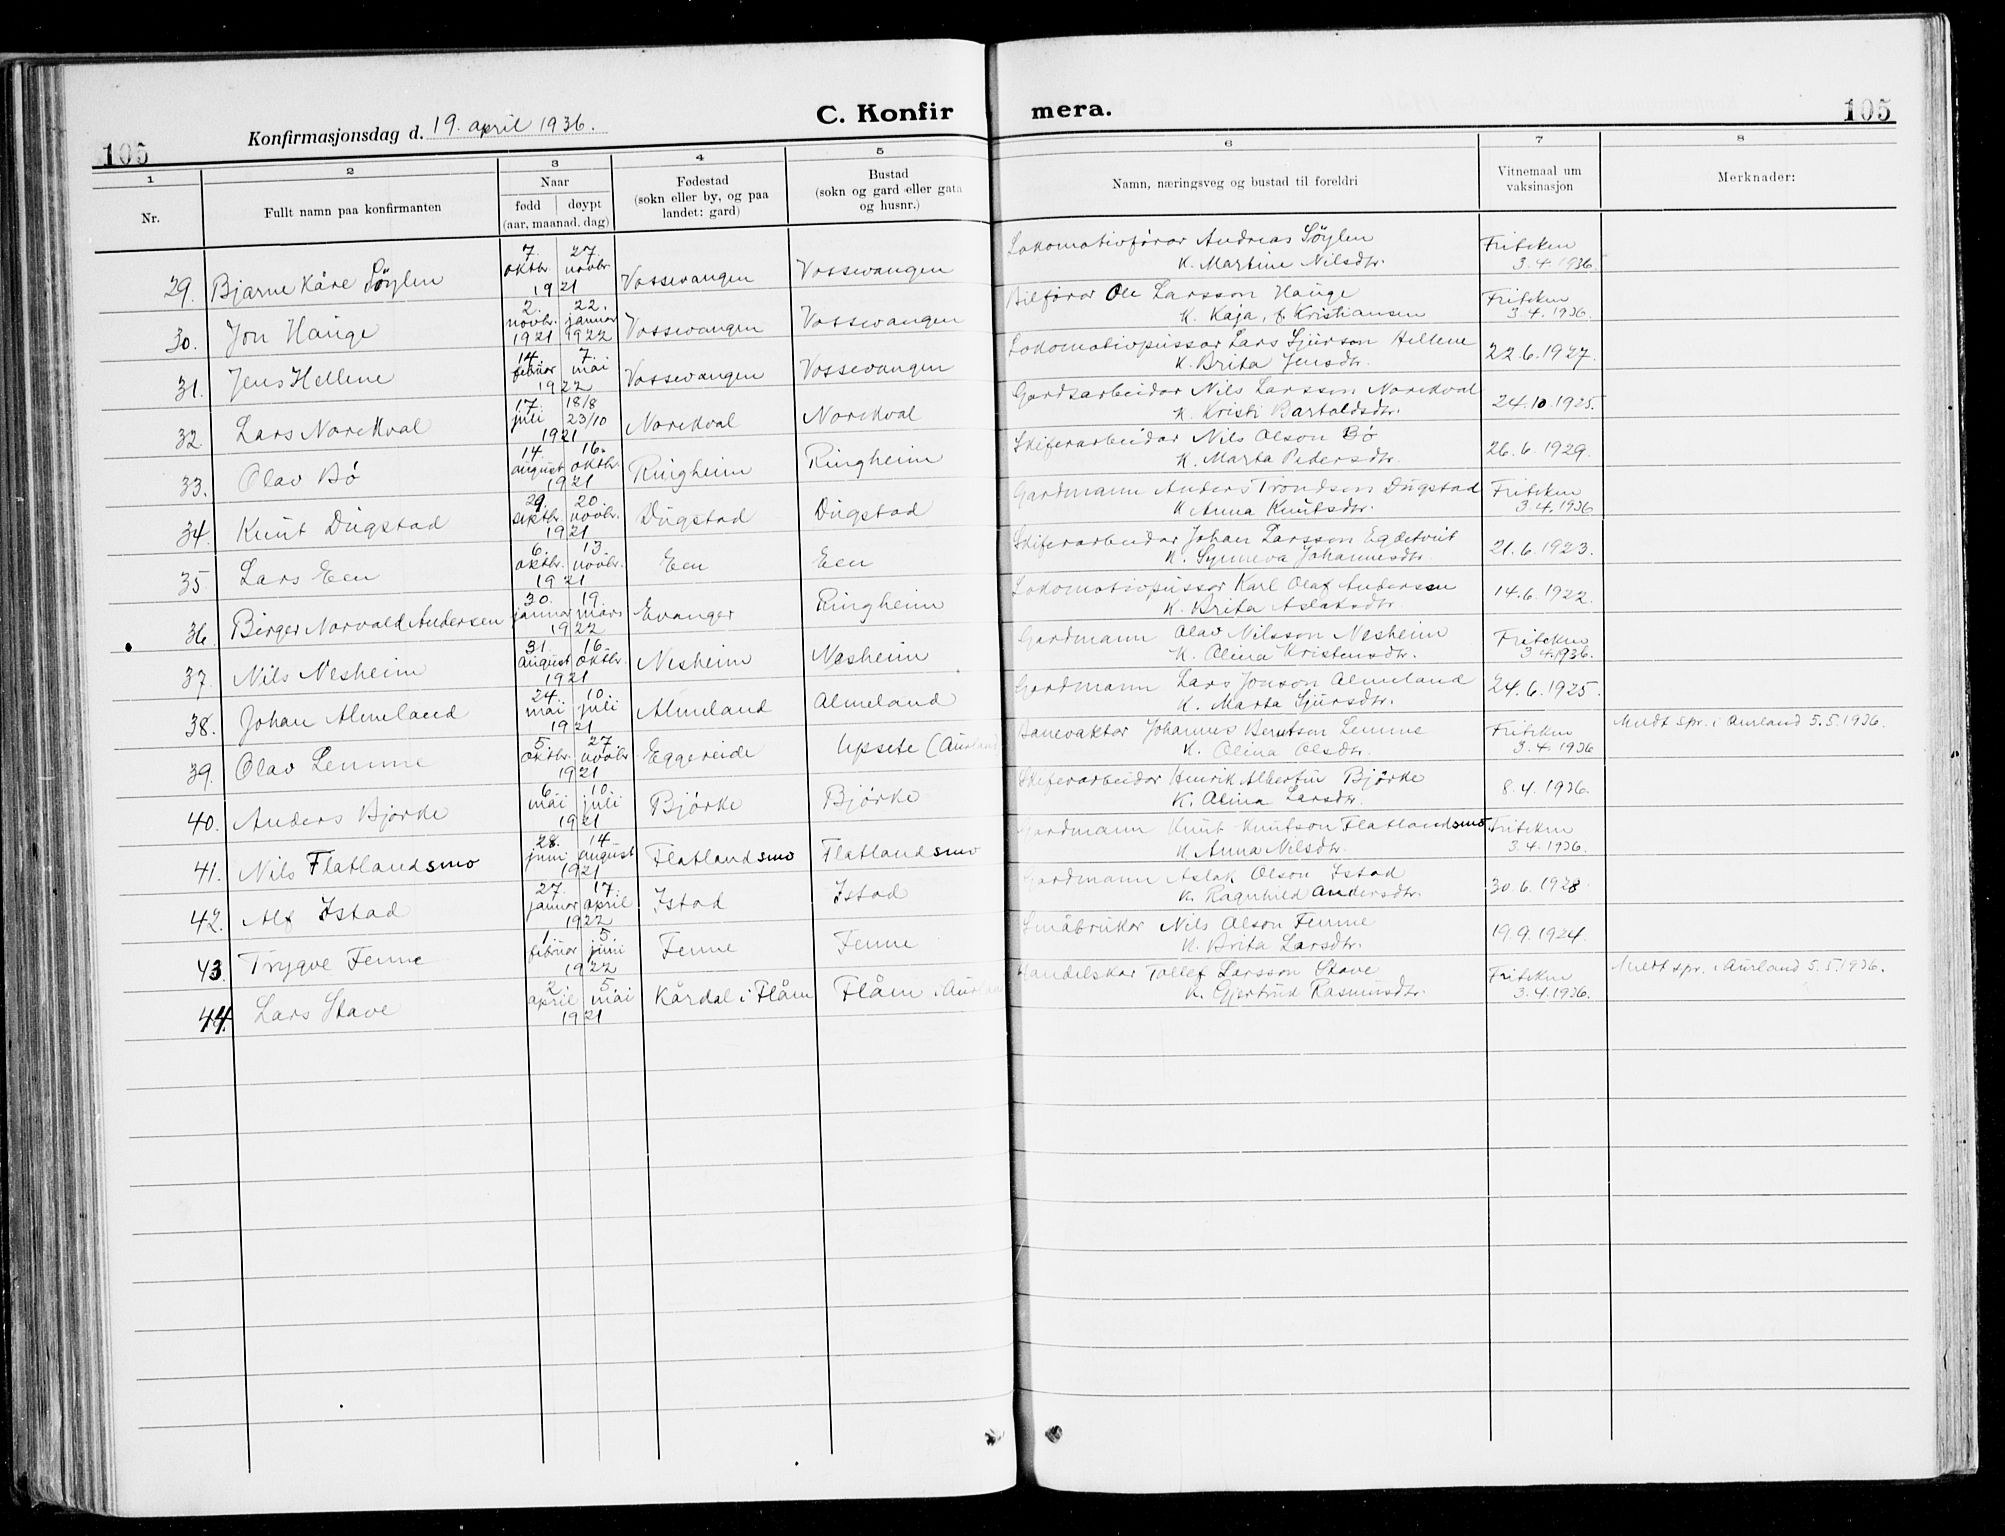 105
Konfirmasjonsdag d. 19. april 1936.
C. Konfir mera.
105
1 2 3 4 5 6 7 8
Nr.
Fullt namn paa konfirmanten
Naar
fødd døypt
(aar, maanad, dag)
Fødestad
(sokn eller by, og paa
landet: gard)
Bustad
(sokn og gard eller gata
og husnr.)
Namn, næringsveg og bustad til foreldri
Vitnemaal um
vaksinasjon
Merknader:
29. Bjarne Kåre Søylen 7. oktbr. 27. novbr. 1921 Vossevangen Vossevangen Lokomotivførar Andreas Søylen Friteken
K. Martine Nilsdtr. 3.4.1936
30. Jon Hauge 2. novbr. 1921 22. januar 1922 Vossevangen Vossevangen Bilførar Ole Larsson Hauge Friteken
K. Kaja, f. Kristiansen 3.4.1936.
31. Jens Hellene 14. februar 7. mai 1922 Vossevangen Vossevangen Lokomotivpussar Lars Sjurson Hellene 22.6.1927.
K. Brita Jensdtr.
32. Lars Norekval 17. juli 18/8 23/10 1921 Norekval Norekval Gardsarbeidar Nils Larsson Norekval 24.10.1925.
K. Kristi Bartoldsdtr.
33. Olav Bø 14. august 16. oktbr. 1921 Ringheim Ringheim Skiferarbeidar Nils Olson Bø 26.6.1929.
K. Marta Pedersdtr.
34. Knut Dugstad 29. oktbr. 20. novbr. 1921 Dugstad Dugstad Gardmann Anders Trondson Dugstad Friteken
K. Anna Knutsdtr. 3.4.1936
35. Lars Een 6. oktbr. 13. novbr. 1921 Een Een Skiferarbeidar Johan Larsson 21.6.1923.
K. Synneva Johannesdtr.
36. Birger Norvald Andersen 30. januar 19. mars 1922 Evanger Ringheim Lokomotivpussar Karl Olaf Andersen 14.6.1922.
K. Brita Aslaksdtr.
37. Nils Nesheim 31. august 16. oktbr. 1921 Nesheim Nesheim Gardmann Olav Nilsson Nesheim Friteken
K. Olina Kristensdtr. 3.4.1936.
38. Johan Almeland 24. mai 10. juli 1921 Almeland Almeland Gardmann Lars Jonson Almeland 24.6.1925.
K. Marta Sjursdtr.
39. Olav Lemme 5. oktbr. 27. novbr. 1921 Eggereide Upsete (Aurland Banevaktar Johannes Berntson Lemme Friteken Meldt spr. i Aurland 5.5.1936.
K. Olina Olsdtr. 3.4.1936
40. Anders Bjørke 6. mai 10. juli 1921 Bjørke Bjørke Skiferarbeidar Henrik Albertin Bjørke 8.4.1936.
K. Alina Larsdtr.
41. Nils Flatlandsmo 28. juni 14. august 1921 Flatlandsmo Flatlandsmo Gardmann Knut Knutson Flatlandsmo. Friteken
K. Anna Nilsdtr. 3.4.1936.
42. Alf Istad 27. januar 17. april 1922 Istad Istad Gardmann Aslak Olson Istad 30.6.1928.
K. Ragnhild Andersdtr.
43. Trygve Fenne 1. februar 5. juni 1922 Fenne Fenne Småbrukar Nils Olson Fenne 19.9.1924.
K. Brita Larsdtr.
44. Lars Stave 2. april 5. mai 1921 Kårdal i Flåm Flåm i Aurland Handelskar Tollef Larsson Stave Friteken Meldt spr. i Aurland 5.5.1936.
K. Gjertrud Rasmusdtr. 3.4.1936.